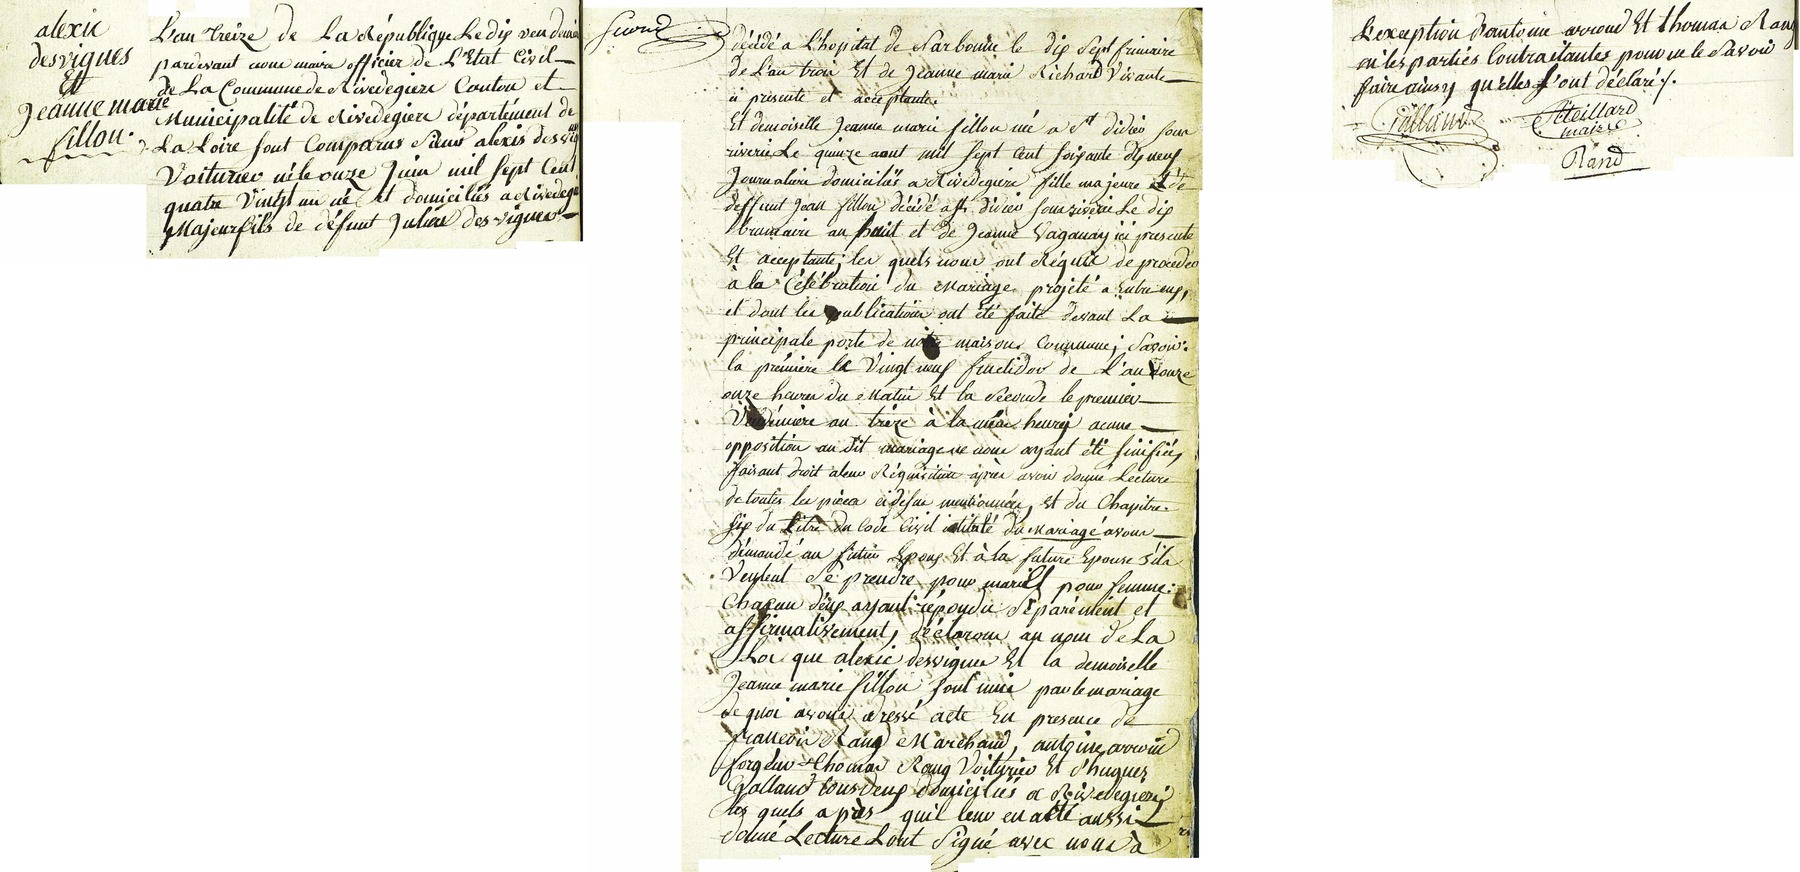 alexic
desvignes
Et
Jeanne marie
fillon.
L'an treize de La République Le dix vendemi
pardevant nous maire officier de L'Etat Civil
de La Commune de Rivedegiere Canton et
Municipalité de Rivedegiere département de
La Loire sont Comparus Sieur alexis desvig
Voiturier né le onze Juin mil sept Cent
quatre Vingt un né et domiciliés a Rivedegi
Majeur fils de défunt Julien desvignes
décédé a L'hopital de Narbonne le dix Sept frimaire
de L'an trois Et de Jeanne marie Richard Vivante
a presente et acceptante.
Et demoiselle Jeanne marie fillon né a St didier sous
riverie Le quinze aout mil sept Cent soixante dix neuf
Journaliere domiciliés a Rivedegiere fille majeure de
deffunt Jean fillon décédé a St didier sous riverie Le dix
brumaire an huit et de Jeanne Vaganay ici presente
Et acceptante; les quels nous ont Réquit de proceder
à la Célébration du Mariage projeté a Entre eux,
et dont les publications ont été faite devant La
principale porte de notre maison Commune; Savoir.
la première le Vingt neuf fructidor de L'an douze
onze heures du Matin Et la Seconde le premier
Vendémiere an treize à la même heure; acune
opposition au dit mariage ne nous ayant été sinifiée,
faisant droit a leur Réquisition après avoir donné Lecture
de toutes les pièces ci desus mentionnées, Et du Chapitre
six du titre du Code Civil intitulé du Mariage avons
démandé au futur Epoux Et à la future Epouse S'ils
Veulent Se prendre pour mari Et pour femme:
Chacun d'eux ayant répondu Séparément et
affirmativement, déclarons au nom de La
Loi que alexic desvignes Et la demoiselle
Jeanne marie fillon sont unis par le mariage
de quoi avons dressé acte En presence de
francois Rand Marchand, antoine avroud
forgeur thomas Rang Voiturier Et S'hugues
Galland tous deux domiciliés a Rivedegiere;
les quels après qu'il leur en a été aussi
donné Lecture L'ont Signé avec nous à
L'exception d'antoine avroud Et thomas Rang
ni les parties Contraitantes pour ne le Savoir
faire ainsy qu'elles L'ont déclaré /.
Galland
Teillard
maire
Rand